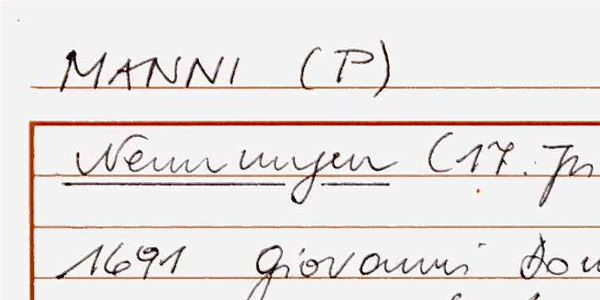 MANNI (P)
Nennungen (17. Jh
1691 Giovanni Dom